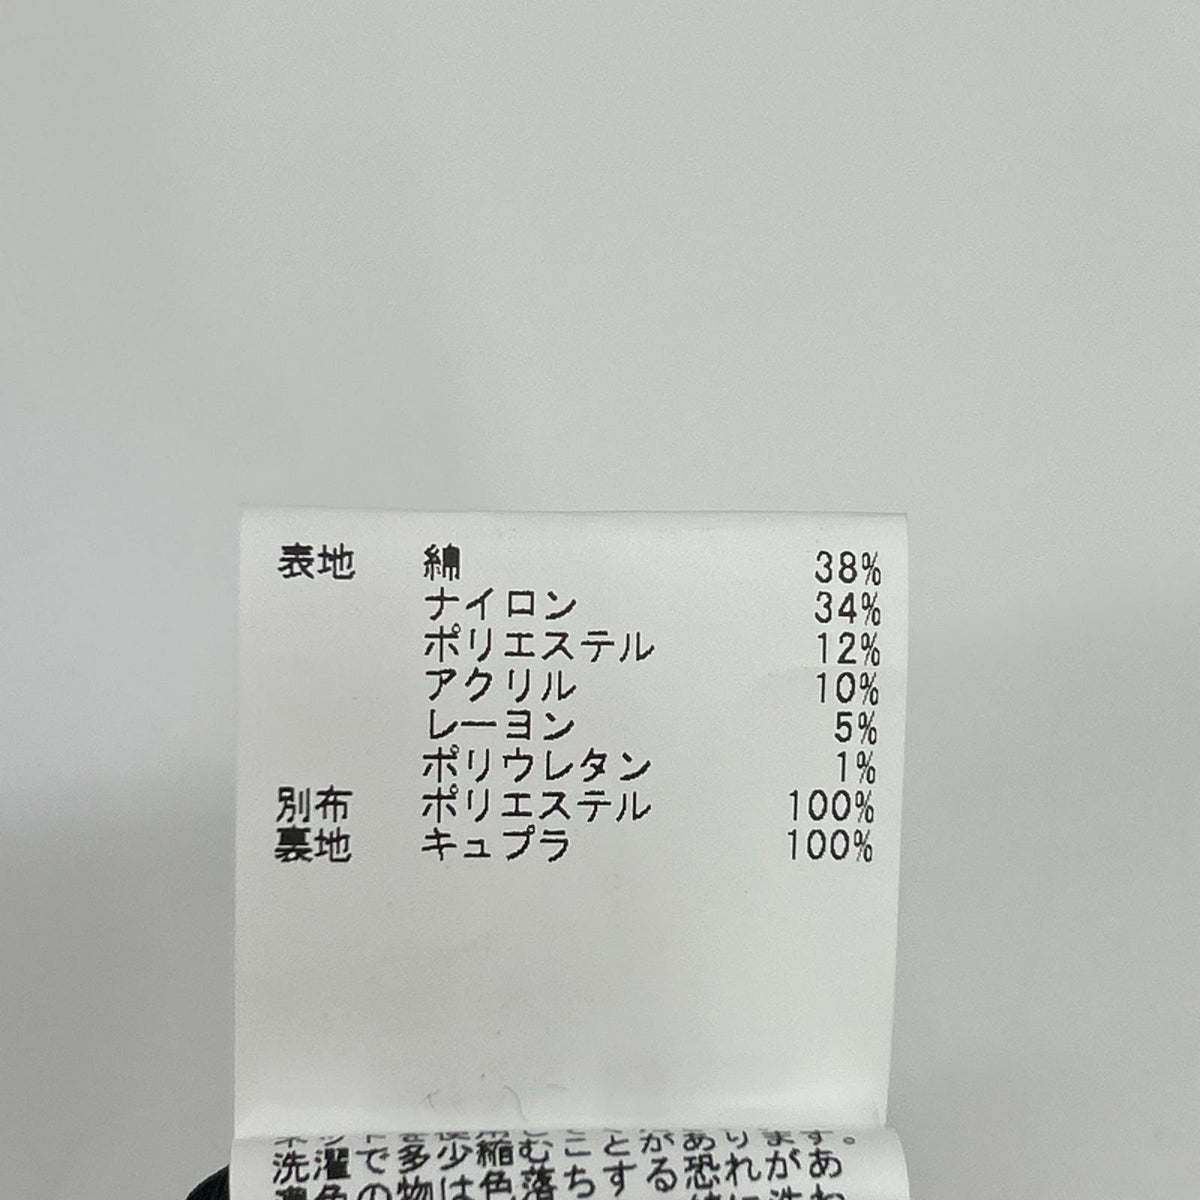 表地 綿 38%
ナイロン 34%
ポリエステル 12%
アクリル 10%
レーヨン 5%
ポリウレタン 1%
別布 ポリエステル 100%
裏地 キュプラ 100%
ことがあります。
洗濯で多少縮む恐れがあ
濃色の物は色落ちする